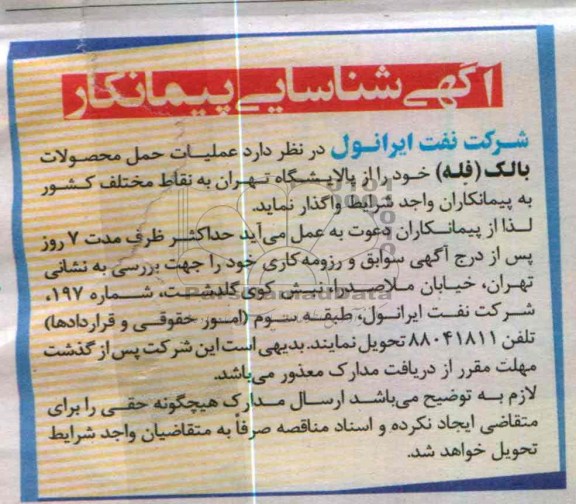 آگهی شناسایی پیمانکار
شرکت نفت ایرانول در نظر دارد عملیات حمل محصولات
بالک (فله) خود را از پالایشگاه تهران به نقاط مختلف کشور
به پیمانکاران واجد شرایط واگذار نماید.
لذا از پیمانکاران دعوت به عمل می‌آید حداکثر ظرف مدت ۷ روز
پس از درج آگهی سوابق و رزومه کاری خود را جهت بررسی به نشانی
تهران، خیابان ملاصدرا نبش کوی گلدشت، شماره ۱۹۷،
شرکت نفت ایرانول، طبقه سوم (امور حقوقی و قراردادها)
تلفن ۸۸۰۴۱۸۱۱ تحویل نمایند. بدیهی است این شرکت پس از گذشت
مهلت مقرر از دریافت مدارک معذور می‌باشد.
لازم به توضیح می‌باشد ارسال مدارک هیچگونه حقی را برای
متقاضی ایجاد نکرده و اسناد مناقصه صرفاً به متقاضیان واجد شرایط
تحویل خواهد شد.